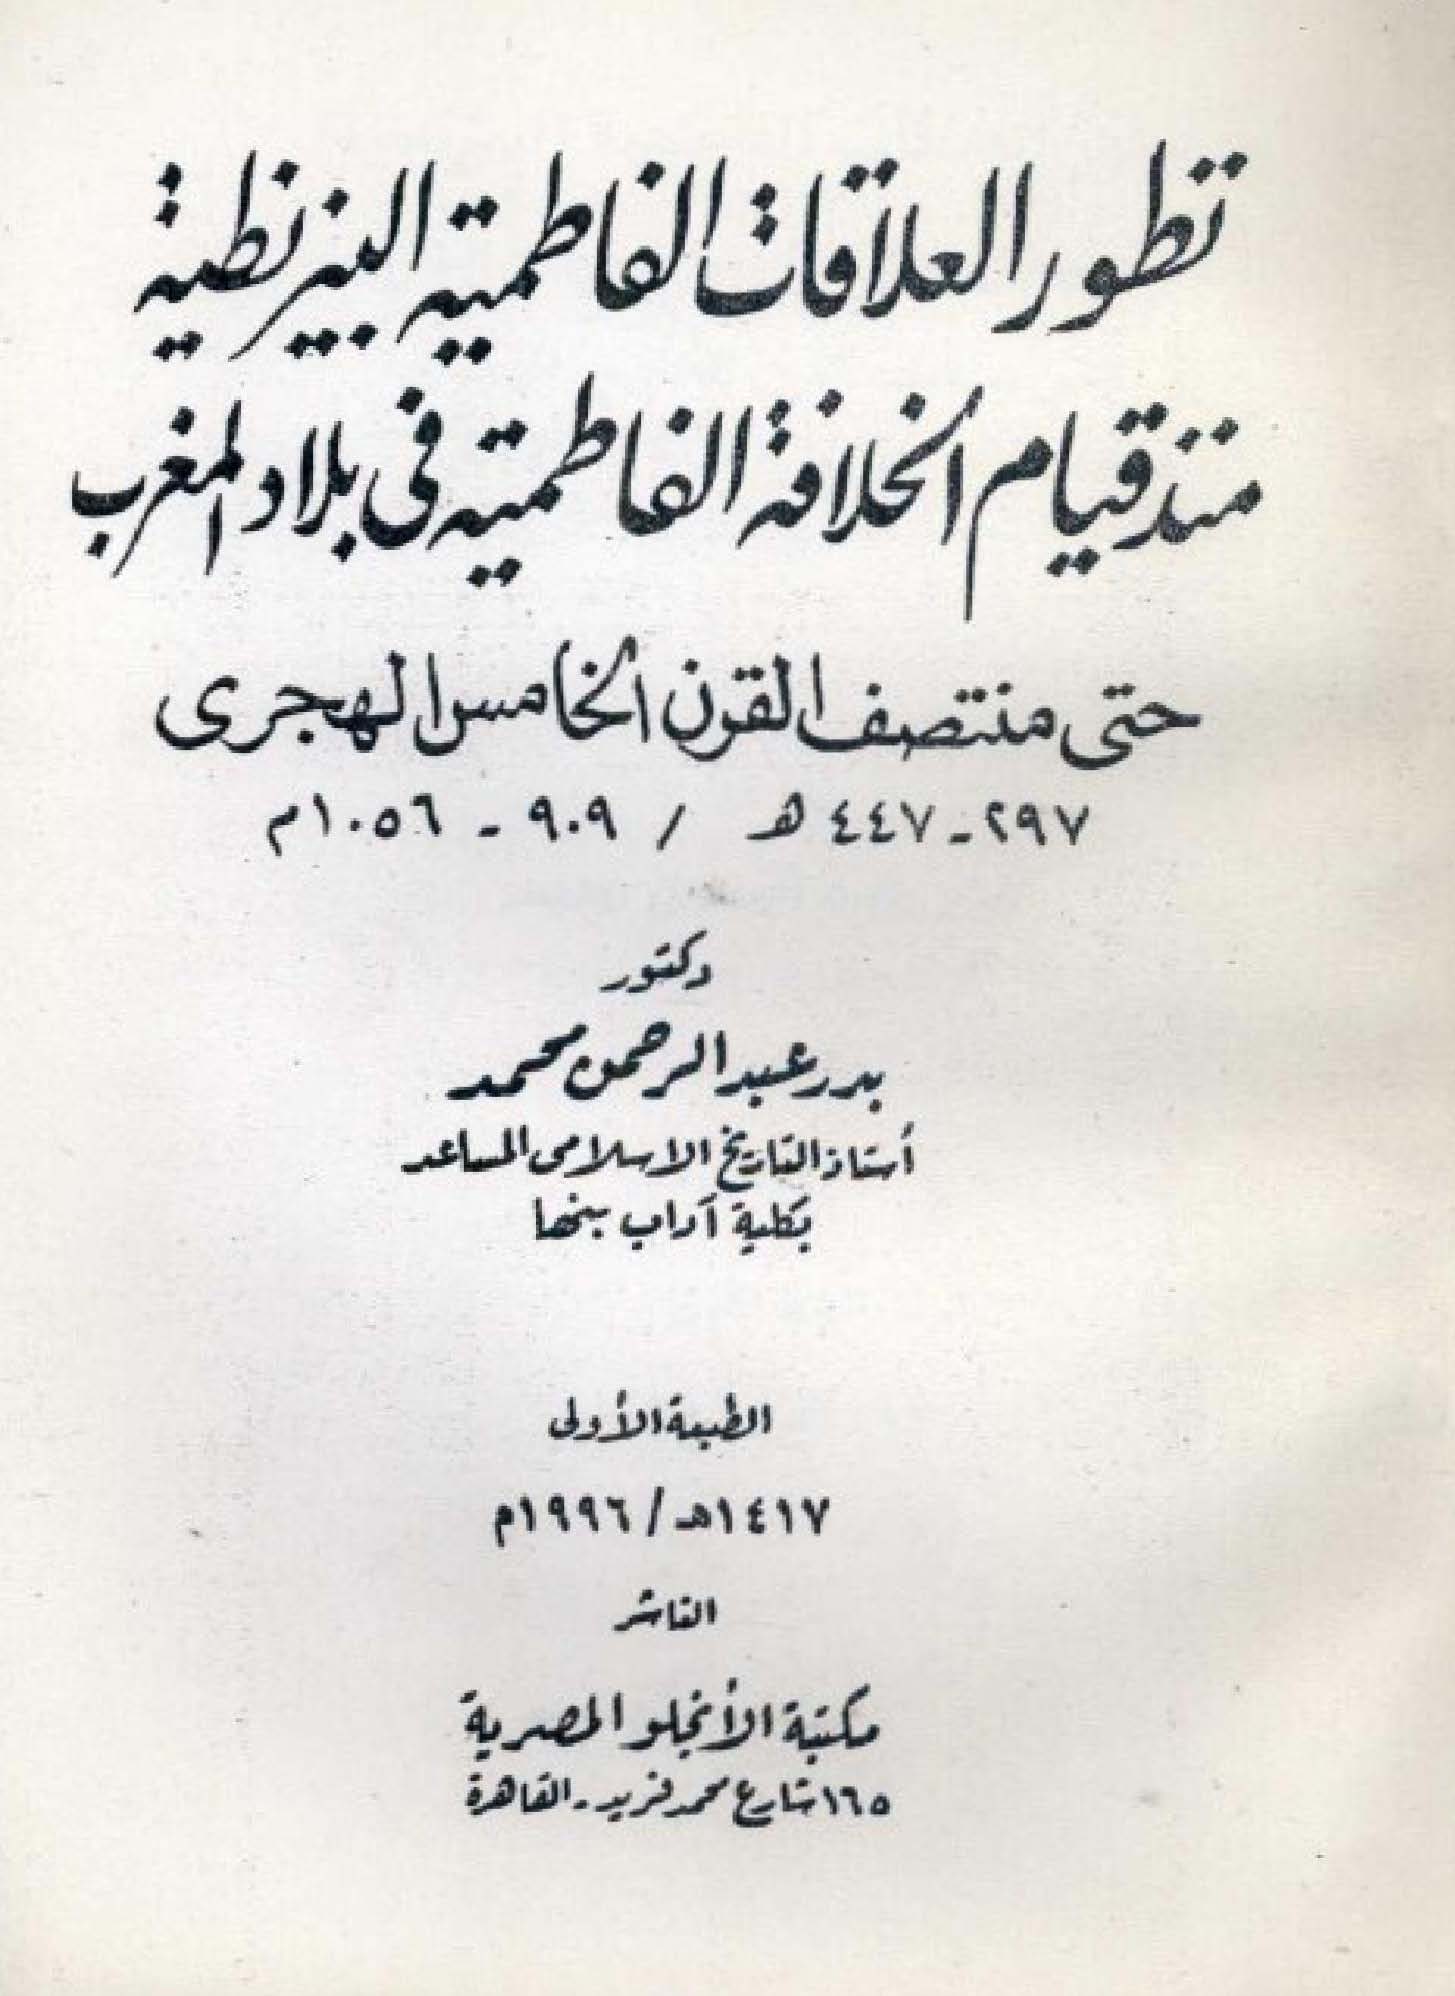 تطور العلاقات الفاطمية البيزنطية
منذ قيام الخلافة الفاطمية في بلاد المغرب
حتى منتصف القرن الخامس الهجرى
٢٩٧ - ٤٤٧ هـ / ٩٠٩ - ١٠٥٦م
دكتور
بدر عبد الرحمن محمد
أستاذ التاريخ الاسلامى المساعد
بكلية آداب بنها
الطبعة الأولى
١٤١٧هـ / ١٩٩٦م
الناشر
مكتبة الأنجلو المصرية
١٦٥ شارع محمد فريد - القاهرة